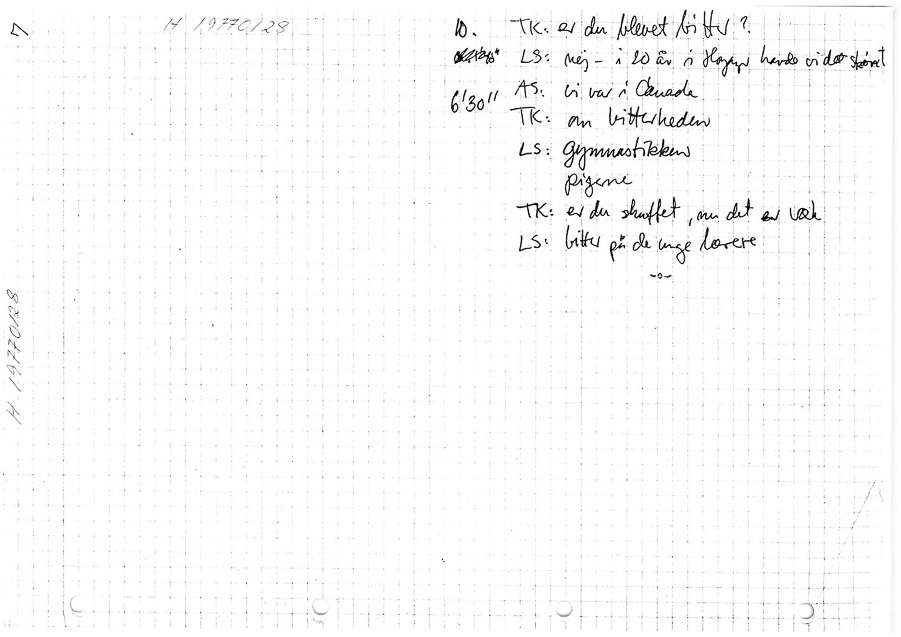 7
H 19770/28
10. TK: er du blevet bitter?
LS: nej - i 20 år i havde vi det skønt
6'30" AS: vi var i Canada
TK: om bitterheden
LS: gymnastikken
pigerne
TK: er du skuffet, nu det er væk
LS: bitter på de unge lærere
-o-
H 19770/28